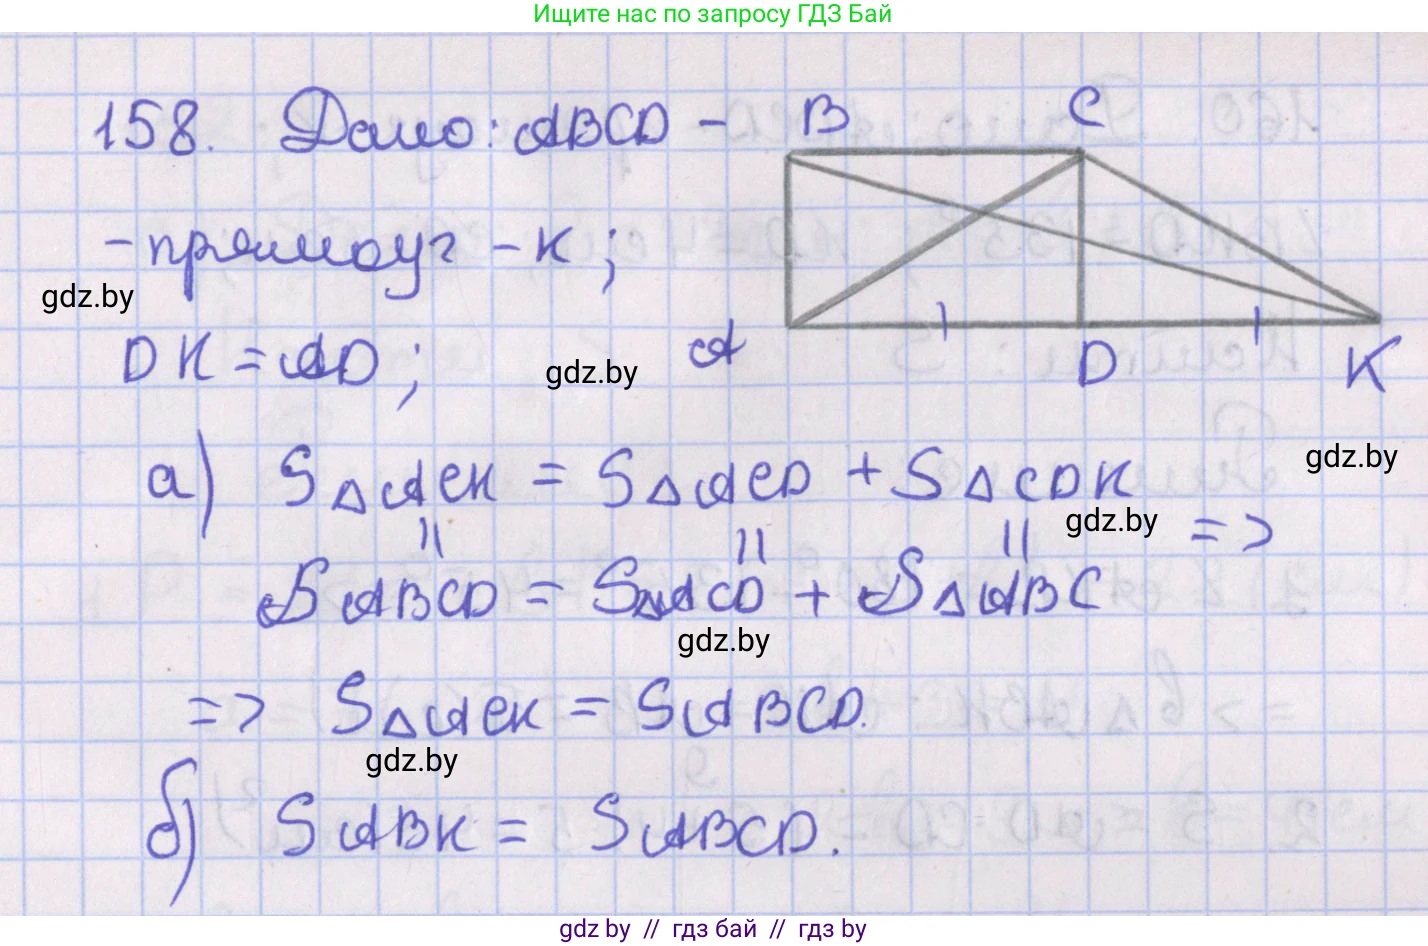 Ищите нас по запросу ГДЗ Бай
158. Дано: ABCD –
B
C
– прямоуг – к;
gdz.by
DK = AD;
gdz.by
A
D
K
gdz.by
а) S△ACK = S△ACD + S△CDK
gdz.by
=>
|| || ||
SABCD = S△ACD + S△ABC
gdz.by
=> S△ACK = SABCD.
gdz.by
б) SABK = SABCD.
gdz.by // гдз бай // гдз by